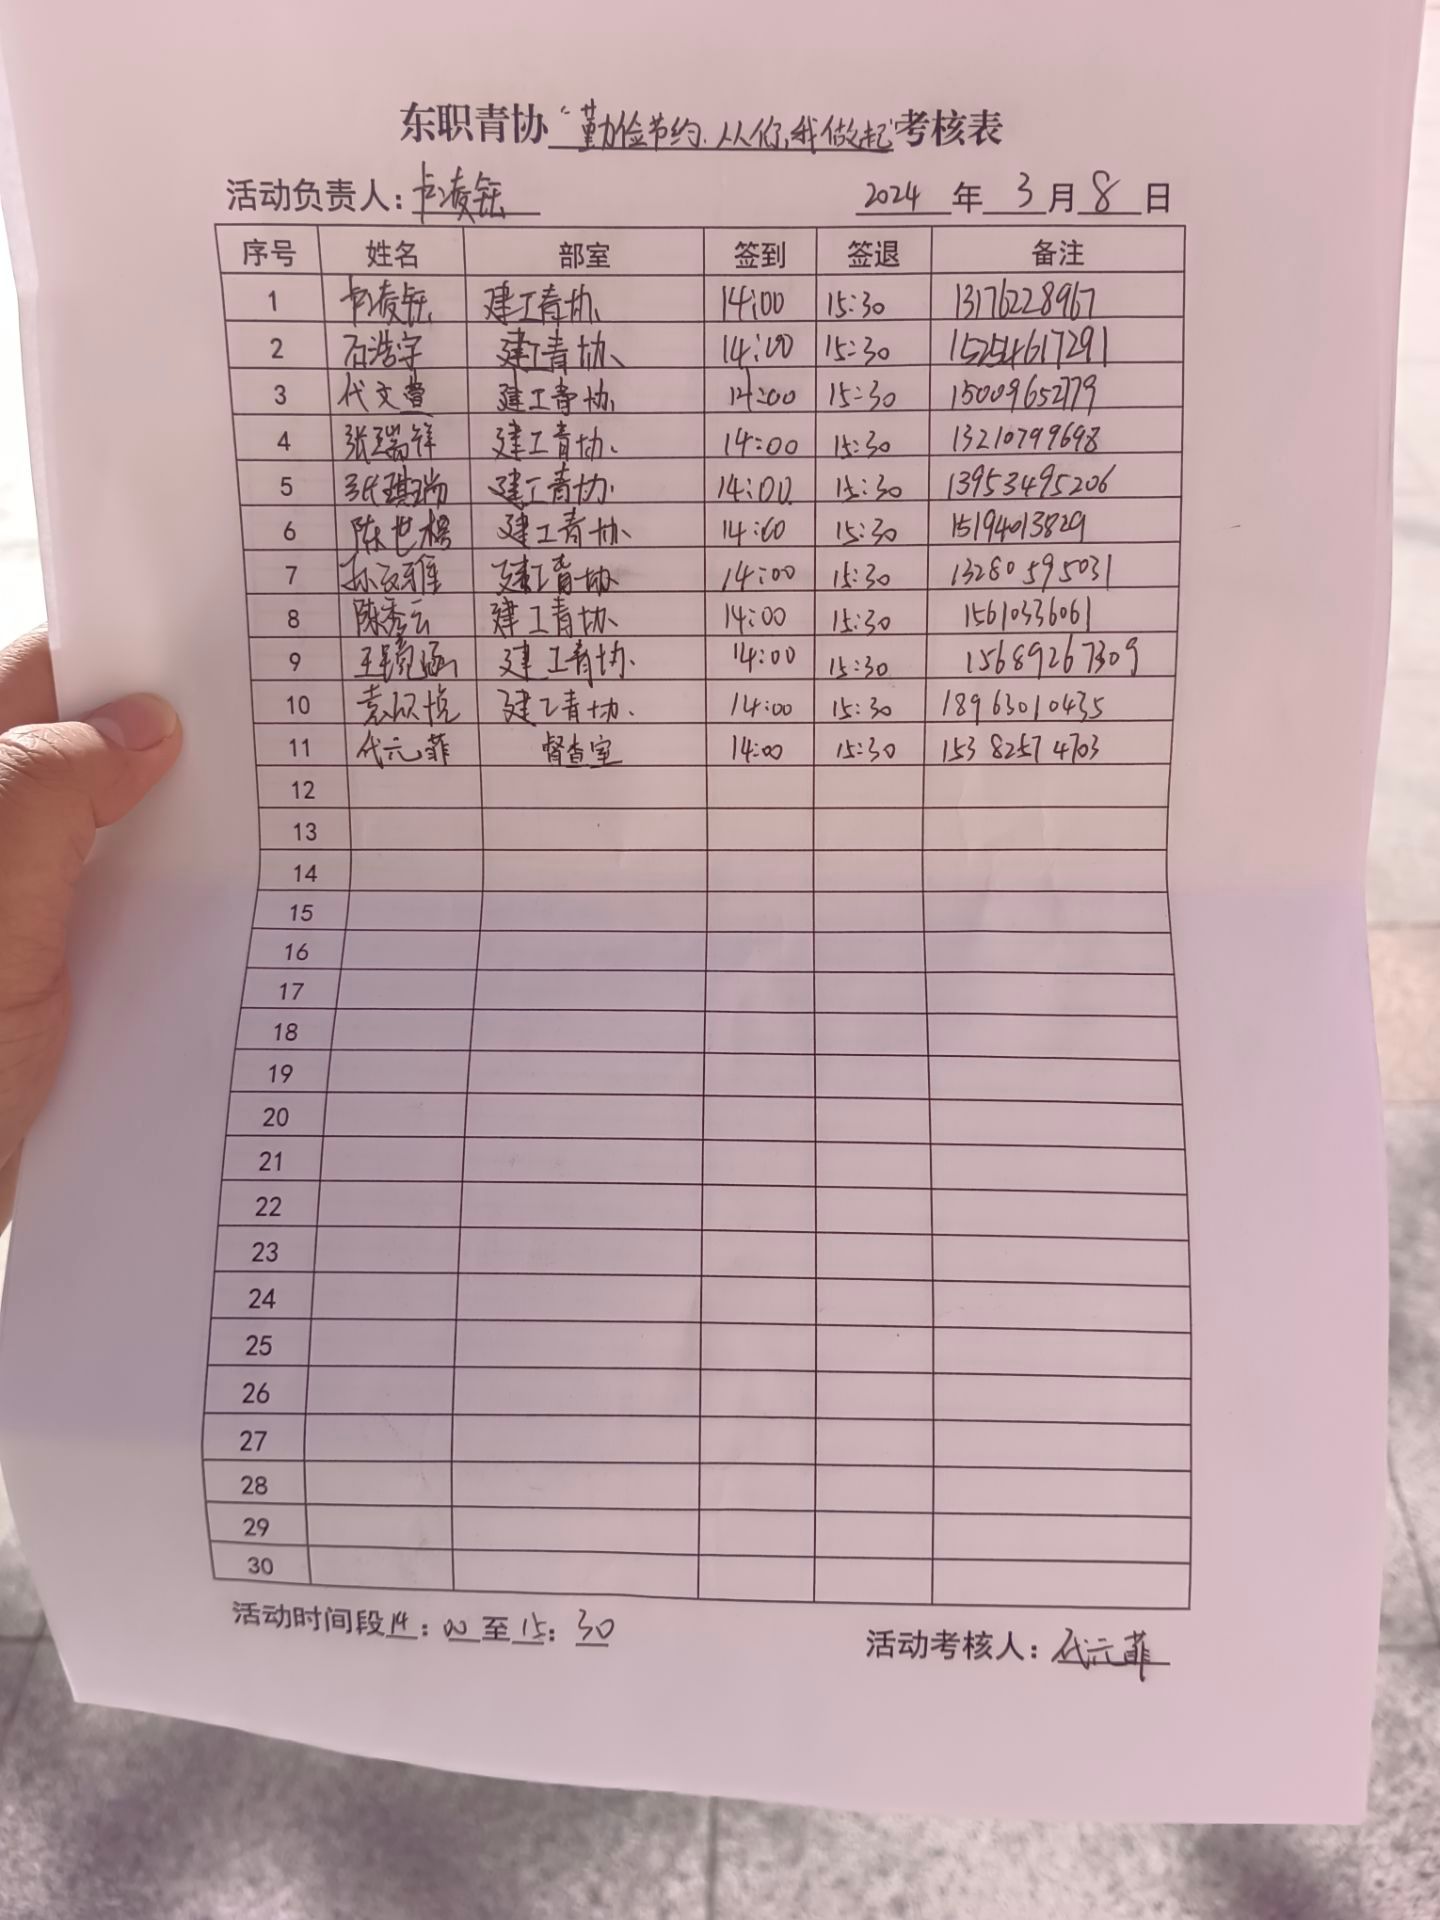 东职青协“勤俭节约.从你,我做起”考核表
活动负责人: 凌钰 2024 年 3 月 8 日
序号 姓名 部室 签到 签退 备注
1 凌钰 建工青协 14:00 15:30 13176228967
2 石浩宇 建工青协 14:00 15:30 15254617291
3 代文萱 建工青协 14:00 15:30 15009652779
4 张瑞祥 建工青协 14:00 15:30 13210799698
5 张琪瑞 建工青协 14:00 15:30 13953495206
6 陈世 建工青协 14:00 15:30 15194013829
7 孙 雅 建工青协 14:00 15:30 13280595031
8 陈秀云 建工青协 14:00 15:30 15610336061
9 王 涵 建工青协 14:00 15:30 15689267309
10 袁欣悦 建工青协 14:00 15:30 18963010435
11 代元菲 督查室 14:00 15:30 153 8257 4703
12
13
14
15
16
17
18
19
20
21
22
23
24
25
26
27
28
29
30
活动时间段 14 : 00 至 15 : 30
活动考核人: 代元菲